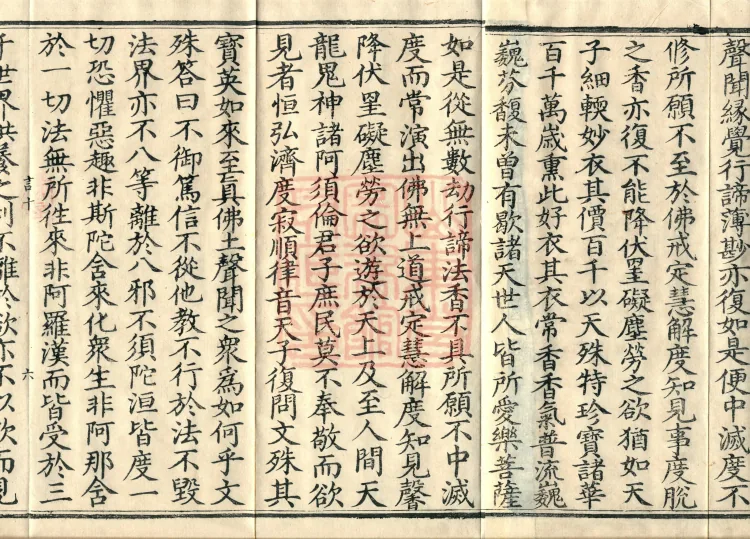 聲聞緣覺行諦薄尠亦復如是便中滅度不
修所願不至於佛戒定慧解度知見事度脫
之香亦復不能降伏罣礙塵勞之欲猶如天
子細輭妙衣其價百千以天殊特珍寶諸華
百千萬歲熏此好衣其衣常香香氣普流巍
巍芬馥未曾有歇諸天世人皆所愛樂菩薩
如是從無數劫行諦法香不具所願不中滅
度而常演出佛無上道戒定慧解度知見馨
降伏罣礙塵勞之欲游於天上及至人間天
龍鬼神諸阿須倫君子庶民莫不奉敬而欲
見者恒弘濟度寂順律音天子復問文殊其
寶英如來至真佛土聲聞之衆爲如何乎文
殊答曰不御篤信不從他教不行於法不毀
法界亦不八等離於八邪不須陀洹皆度一
切恐懼惡趣非斯陀含來化衆生非阿那含
於一切法無所徃來非阿羅漢而皆受於三
六
千世界供養之利不離於欲亦不以欲而見